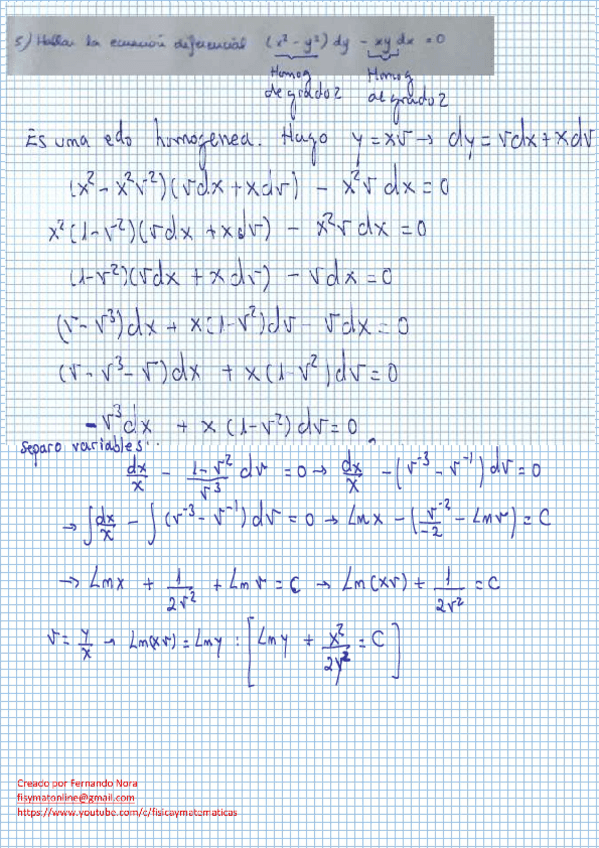 5) Hallar la ecuación diferencial (x² - y²) dy - xy dx = 0
Homog Homog
de grado 2 de grado 2
Es una edo homogenea. Hago y = xv → dy = vdx + xdv
(x² - x²v²)(vdx + xdv) - x²v dx = 0
x²(1-v²)(vdx + xdv) - x²v dx = 0
(1-v²)(vdx + xdv) - vdx = 0
(v - v³)dx + x(1-v²)dv - vdx = 0
(v - v³ - v)dx + x(1-v²)dv = 0
-v³dx + x(1-v²)dv = 0
Separo variables:
dx/x - (1-v²)/v³ dv = 0 → dx/x - (v⁻³ - v⁻¹)dv = 0
→ ∫dx/x - ∫(v⁻³ - v⁻¹)dv = 0 → Lnx - (v⁻²/-2 - Lnv) = C
→ Lnx + 1/2v² + Lnv = C → Ln(xv) + 1/2v² = C
v = y/x → Ln(xv) = Lny : [Lny + x²/2y² = C]
Creado por Fernando Nora
fisymatonline@gmail.com
https://www.youtube.com/c/fisicaymatematicas